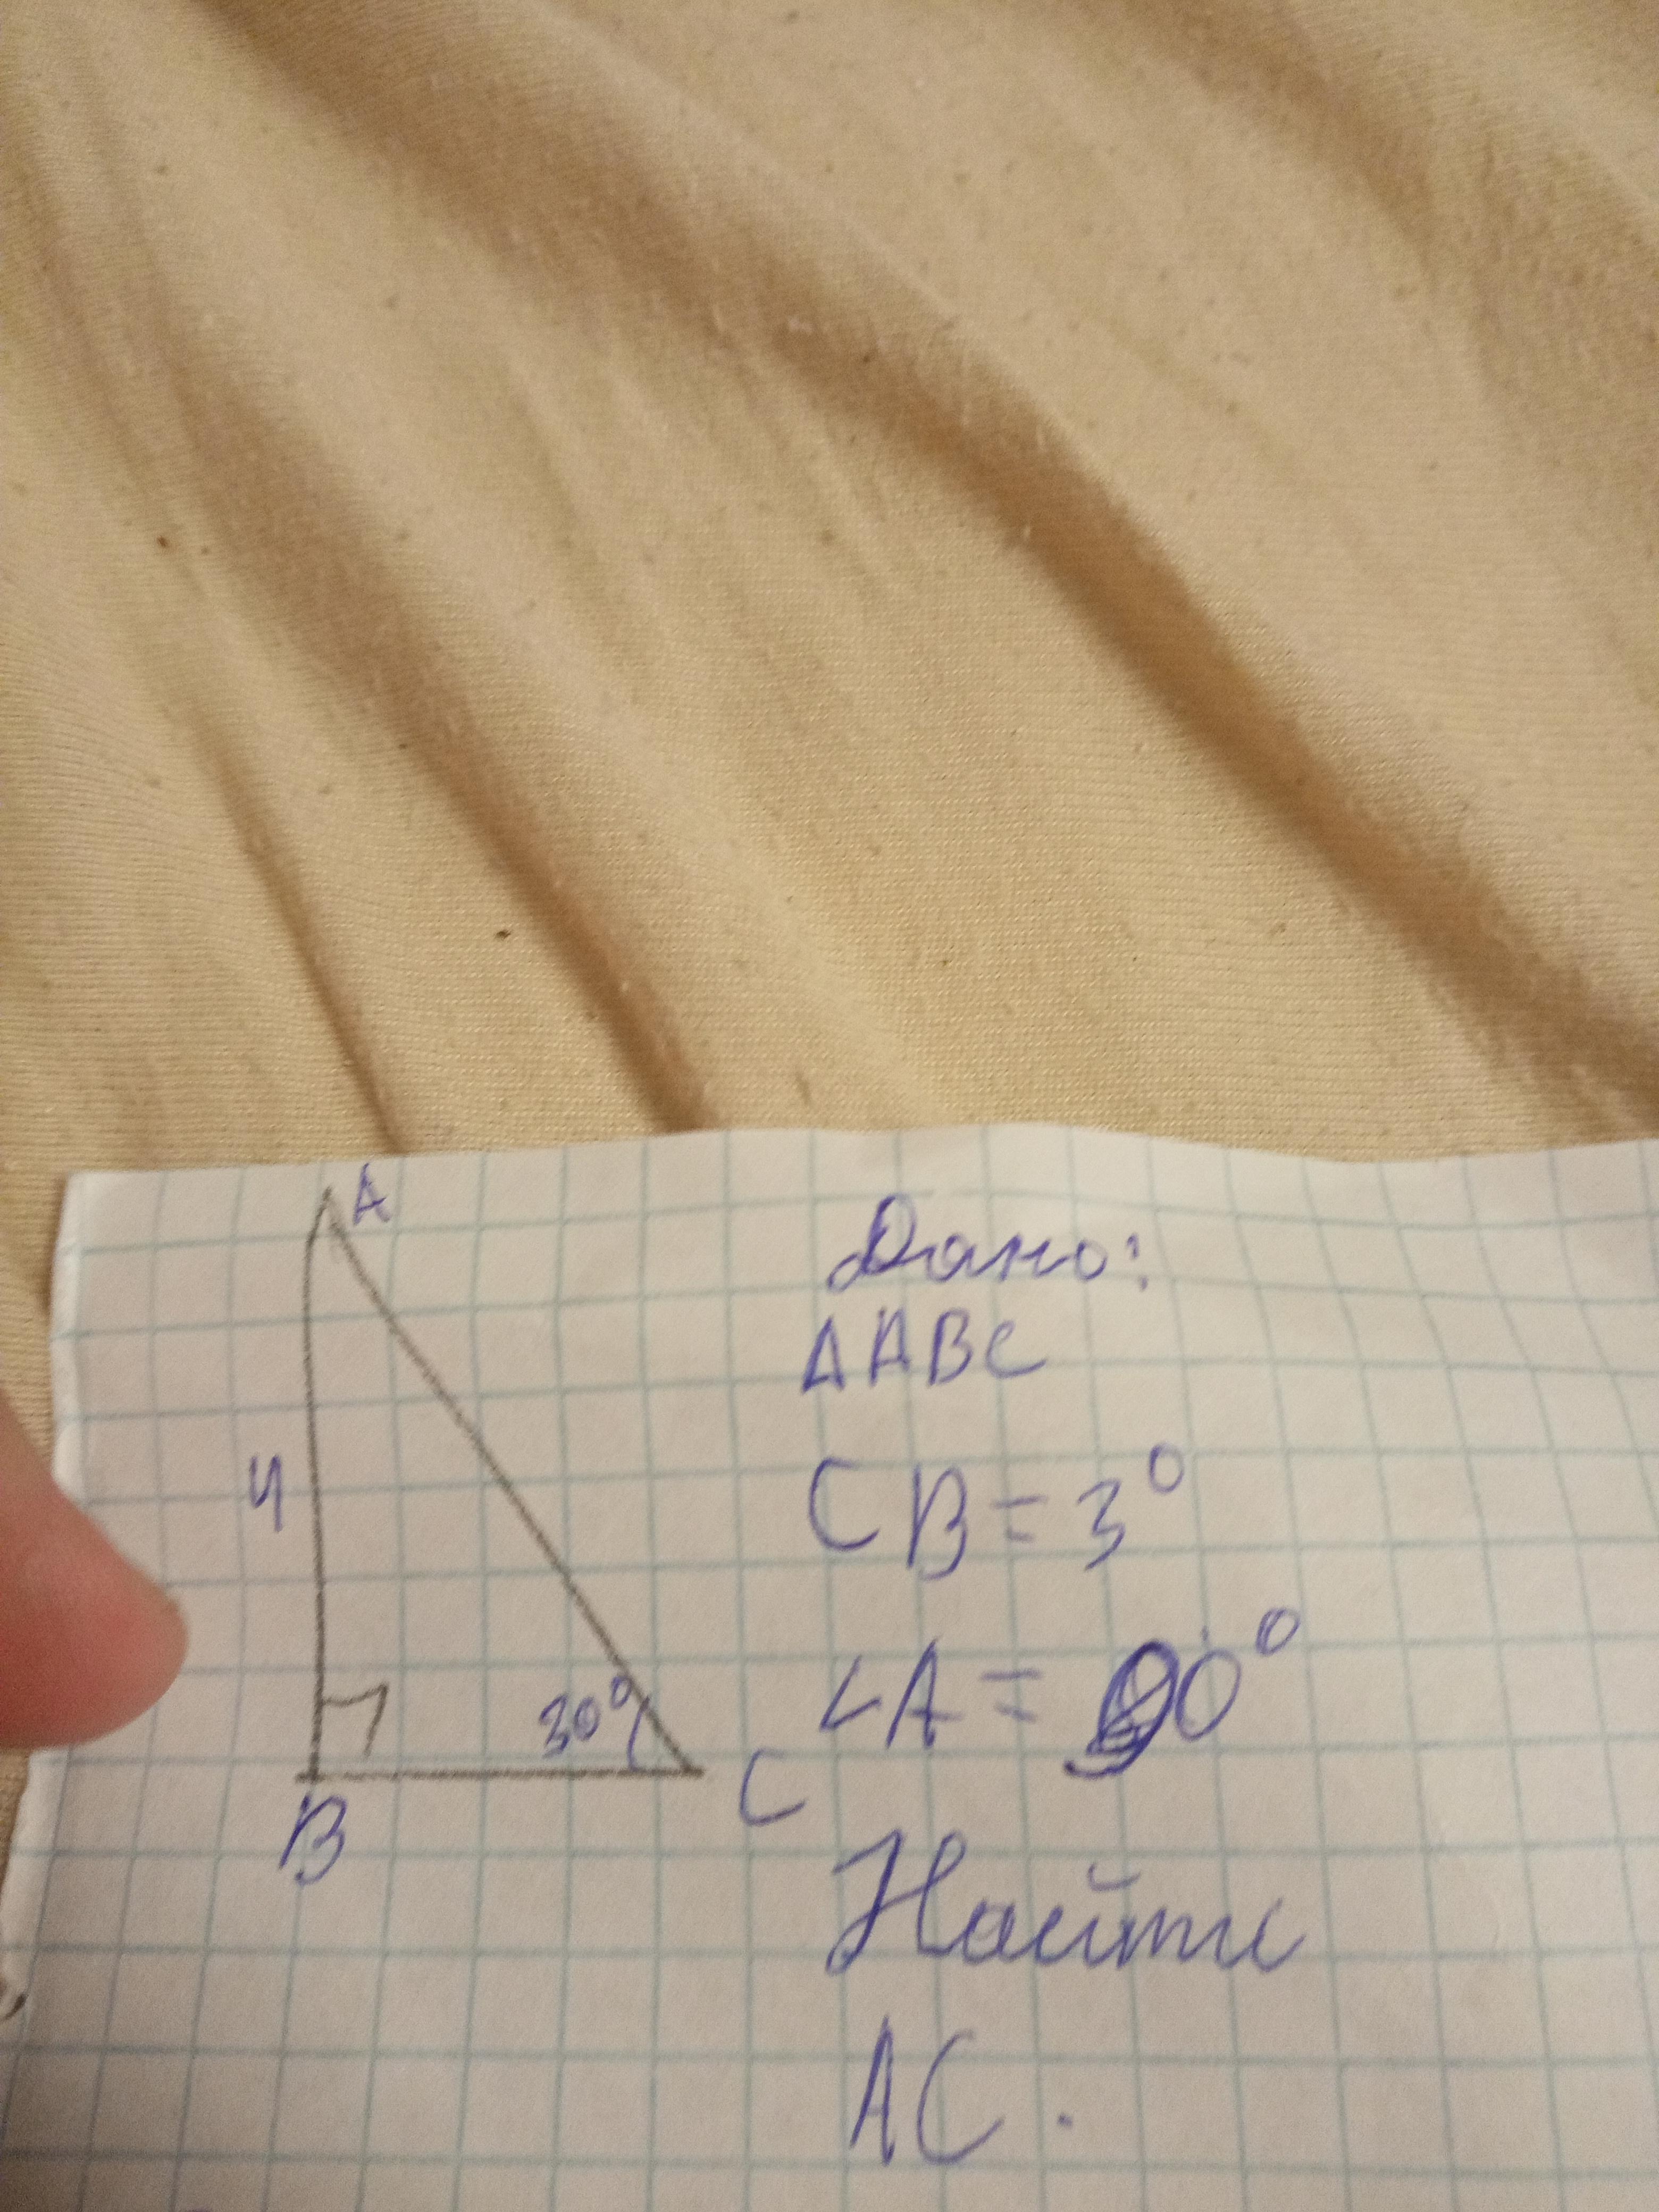 A
4
30°
B
C
Дано:
ΔABC
CB = 3°
∠A = 90°
Найти
AC.